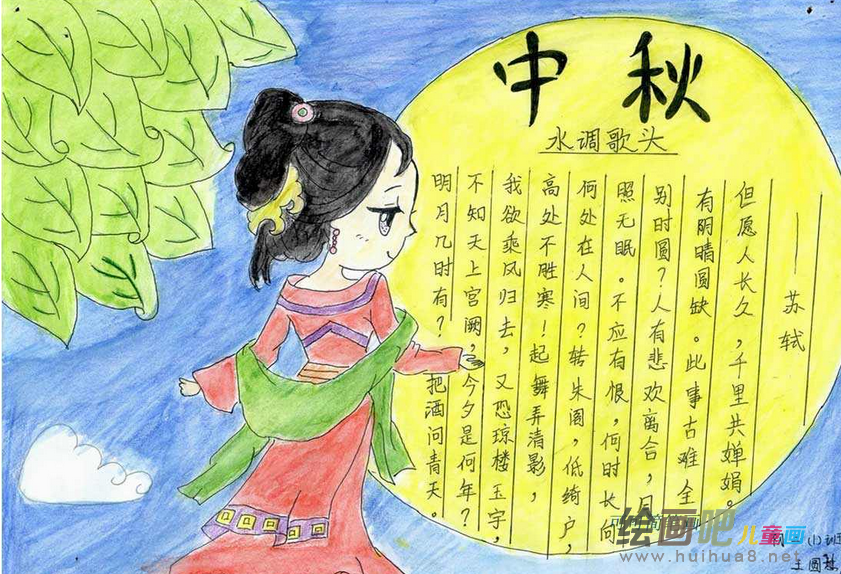 中秋
水调歌头
明月几时有？把酒问青天。
不知天上宫阙，今夕是何年？
我欲乘风归去，又恐琼楼玉宇，
高处不胜寒！起舞弄清影，
何处在人间？转朱阁，低绮户，
照无眠。不应有恨，何时长向
别时圆？人有悲欢离合，月
有阴晴圆缺。此事古难全
但愿人长久，千里共婵娟。
——苏轼
绘画吧儿童画
www.huihua8.net
(1)班
王圆